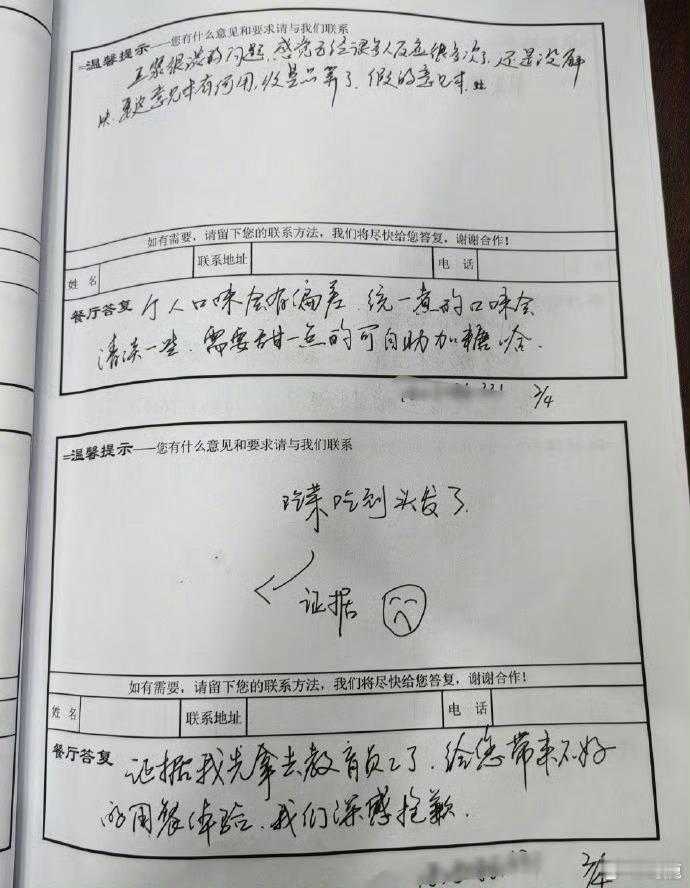 =温馨提示——您有什么意见和要求请与我们联系
豆浆很淡的问题,感觉已经很多人反应很多次了,还是没解
决,要这意见本有何用,收走算了,假的意见本。
如有需要,请留下您的联系方法,我们将尽快给您答复,谢谢合作!
姓名 联系地址 电话
餐厅答复 个人口味会有偏差.统一煮的口味会
清淡一些.需要甜一点的可自助加糖哈.
2/4
=温馨提示——您有什么意见和要求请与我们联系
吃菜吃到头发了
证据
如有需要,请留下您的联系方法,我们将尽快给您答复,谢谢合作!
姓名 联系地址 电话
餐厅答复 证据我先拿去教育员工了.给您带来不好
的用餐体验.我们深感抱歉.
2/4